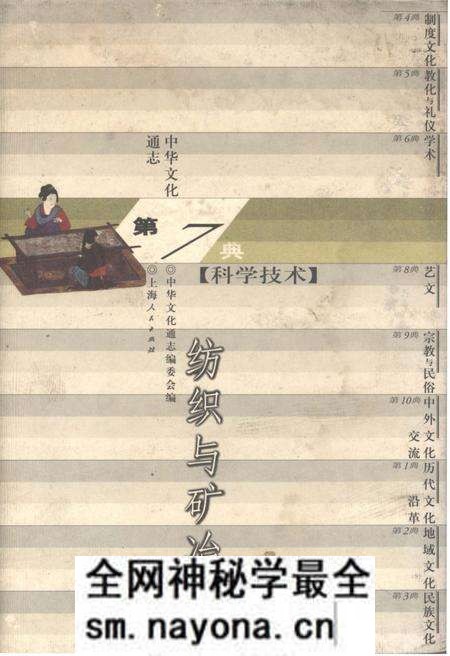 第4典
制度文化
第5典
教化与礼仪
第6典
学术
中华文化
通志
第7典
【科学技术】
第8典
艺文
◎中华文化通志编委会编
◎上海人民出版社
第9典
宗教与民俗
纺织与矿冶
第10典
中外文化
交流
第1典
历代文化
沿革
第2典
地域文化
第3典
民族文化
全网神秘学最全
sm.nayona.cn